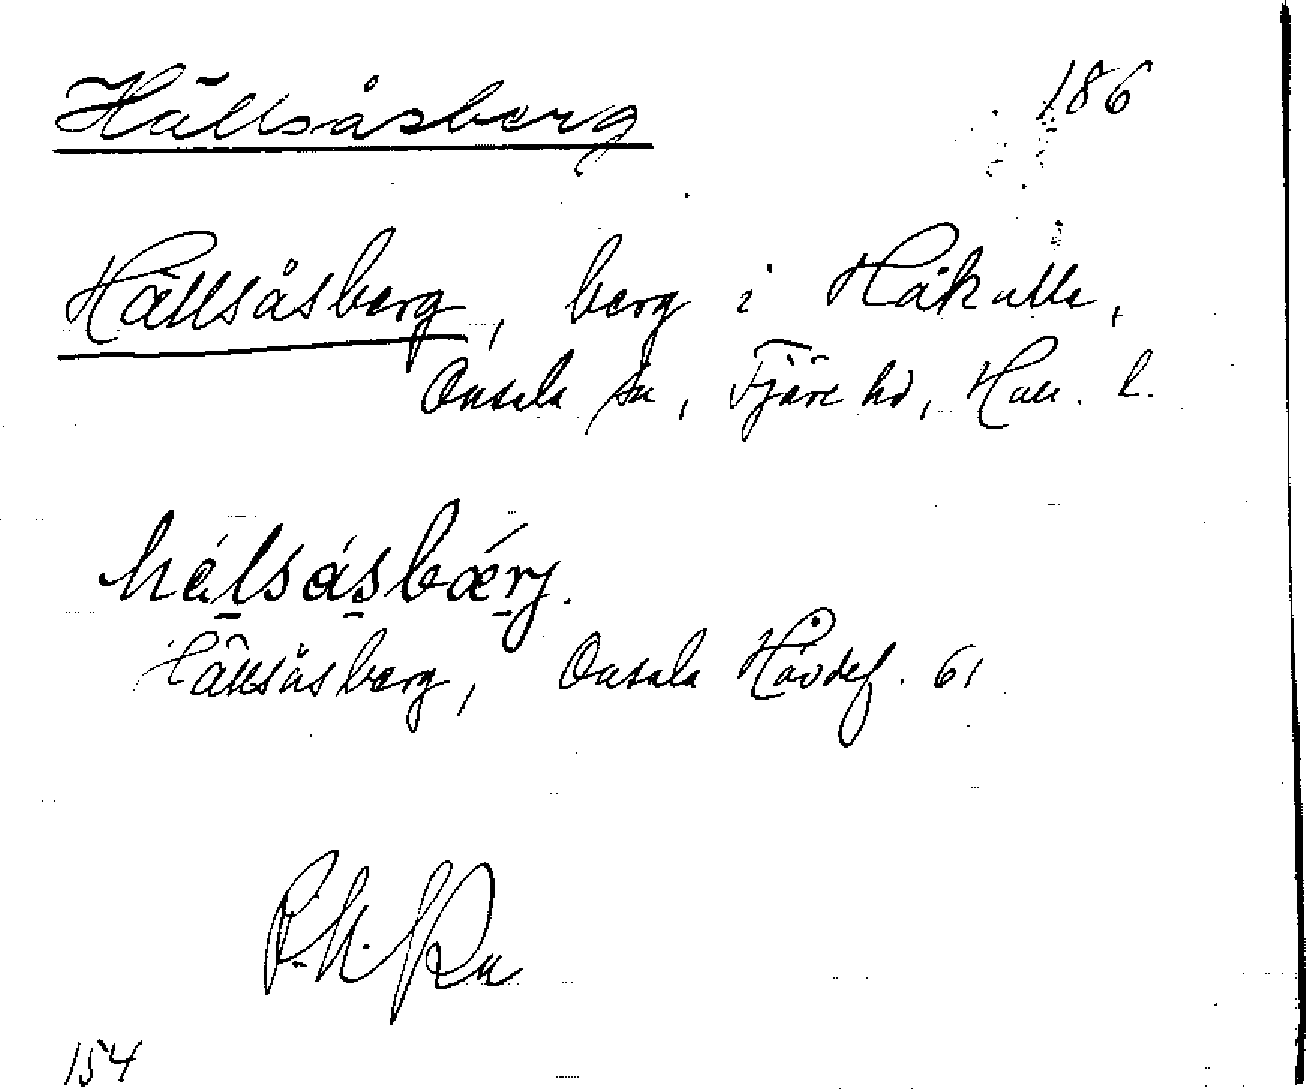 Hällsåsberg 186
Hällsåsberg, berg i Håkulla,
Onsala sn, Fjäre hd, Hall. l.
hálsásbǽrj.
Hällsåsberg, Onsala Håvdef. 61
154